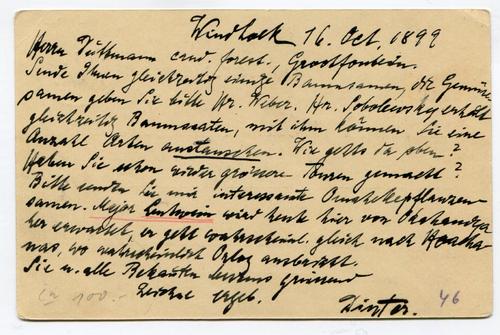 Windhoek 16. Oct. 1899
Herrn Düttmann cand. forest., Grootfontein.
Sende Ihnen gleichzeitig einige Baumsamen, die Gemüse
samen geben Sie bitte Hr. Weber. Hr. Sobolewsky erhält
gleichzeitig Baumsaaten, mit ihm können Sie eine
Anzahl Arten austauschen. Wie gehts da oben?
Haben Sie schon wieder grössere Touren gemacht?
Bitte senden Sie mir interessante Omahekepflanzen
samen. Major Leutwein wird heute hier von Okahandja
her erwartet, er geht wahrscheinl. gleich nach Hoacha
nas, wo wahrscheinlich Orlog ausbricht.
Sie u. alle Bekannten bestens grüssend
zeichne ergeb.
Dinter.
ca 100.-
46